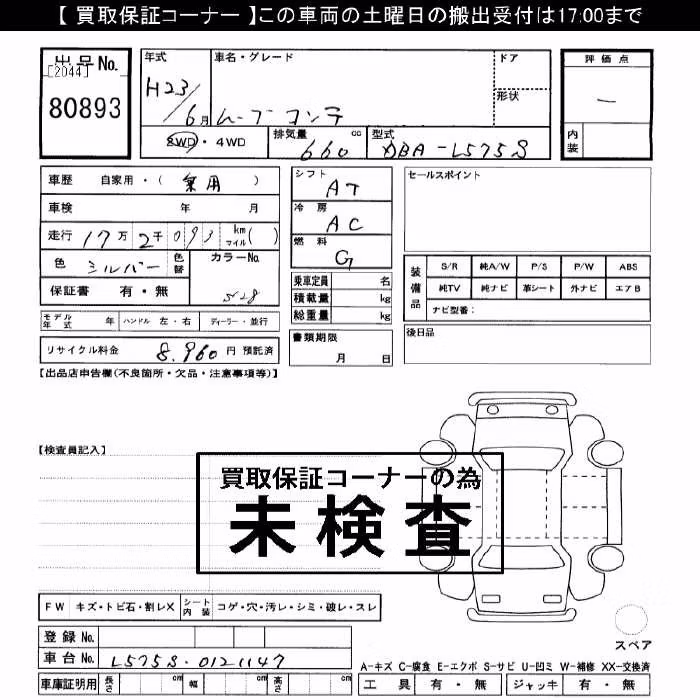 【 買取保証コーナー 】この車両の土曜日の搬出受付は17:00まで
出品No.
[2044]
80893
年式
H23/6月
車名・グレード
ムーブコンテ
ドア
形状
評価点
―
内装
2WD・4WD
排気量 cc
660
型式
DBA-L575S
車歴 自家用・( 乗用 )
車検 年 月
走行 17万2千093 km マイル( )
色 シルバー 色替
カラーNo.
S28
保証書 有・無
モデル年式 年 ハンドル 左・右 ディーラー・並行
リサイクル料金 8,960円 預託済
シフト
AT
冷房
AC
燃料
G
乗車定員 名
積載量 kg
総重量 kg
書類期限
月 日
セールスポイント
装備品
S/R 純A/W P/S P/W ABS
純TV 純ナビ 革シート 外ナビ エアB
ナビ型番:
後日品
【出品店申告欄(不良箇所・欠品・注意事項等)】
【検査員記入】
買取保証コーナーの為
未検査
FW キズ・トビ石・割レX シート内装 コゲ・穴・汚レ・シミ・破レ・スレ
登録No.
車台No. L575S-0121147
車庫証明用 長さ cm 幅 cm 高さ cm
スペア
A-キズ C-腐食 E-エクボ S-サビ U-凹ミ W-補修 XX-交換済
工具 有・無 ジャッキ 有・無